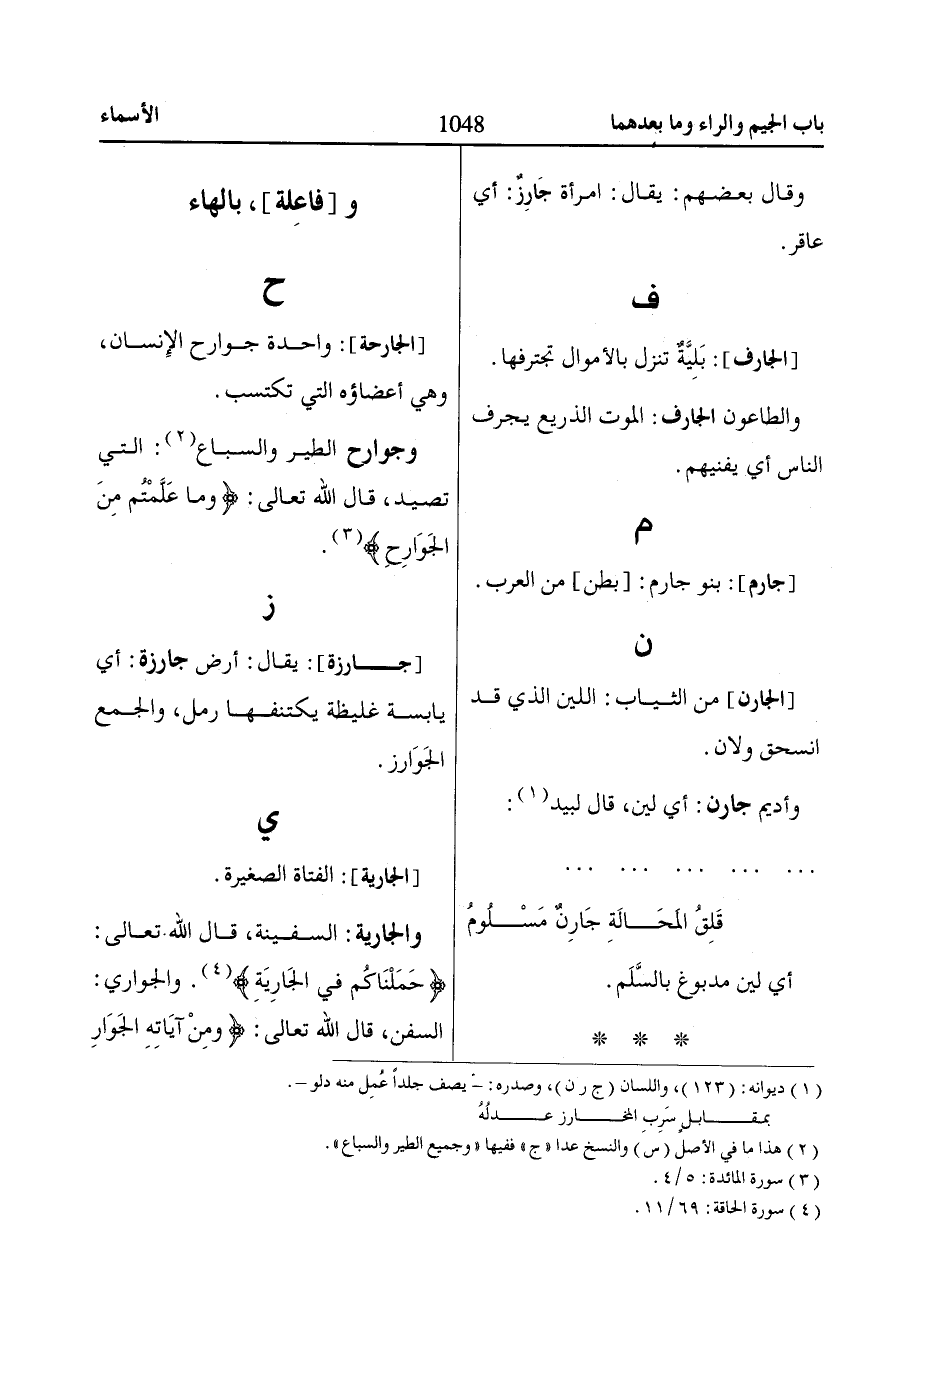 باب الجيم والراء وما بعدهما 1048 الأسماء
وقال بعضهم: يقال: امرأة جَارِزٌ: أي
عاقر.
ف
[الجارف]: بَلِيَّةٌ تنزل بالأموال تجترفها.
والطاعون الجارف: الموت الذريع يجرف
الناس أي يفنيهم.
م
[جارم]: بنو جارم: [بطن] من العرب.
ن
[الجارن] من الثياب: اللين الذي قد
انسحق ولان.
وأديم جارن: أي لين، قال لبيد(١):
... ... ... ... ...
قَلِقُ المَحَالَةِ جَارِنٌ مَسْلُومُ
أي لين مدبوغ بالسَّلَم.
* * *
و [فاعِلة]، بالهاء
ح
[الجارحة]: واحدة جوارح الإنسان،
وهي أعضاؤه التي تكتسب.
وجوارح الطير والسباع(٢): التي
تصيد، قال الله تعالى: ﴿وما عَلَّمْتُم مِنَ
الجَوَارِحِ﴾(٣).
ز
[جارزة]: يقال: أرض جارزة: أي
يابسة غليظة يكتنفها رمل، والجمع
الجَوَارز.
ي
[الجارية]: الفتاة الصغيرة.
والجارية: السفينة، قال الله تعالى:
﴿حَمَلْنَاكُم في الجَارِيَةِ﴾(٤). والجواري:
السفن، قال الله تعالى: ﴿ومِنْ آيَاتِهِ الجَوَارِ
(١) ديوانه: (١٢٣)، واللسان (ج ر ن)، وصدره: - يصف جلداً عُمِل منه دلو -.
بمقابلٍ سَرِبِ المخارز عدلُهُ
(٢) هذا ما في الأصل (س) والنسخ عدا «ج» ففيها «وجميع الطير والسباع».
(٣) سورة المائدة: ٤/٥.
(٤) سورة الحاقة: ١١/٦٩.